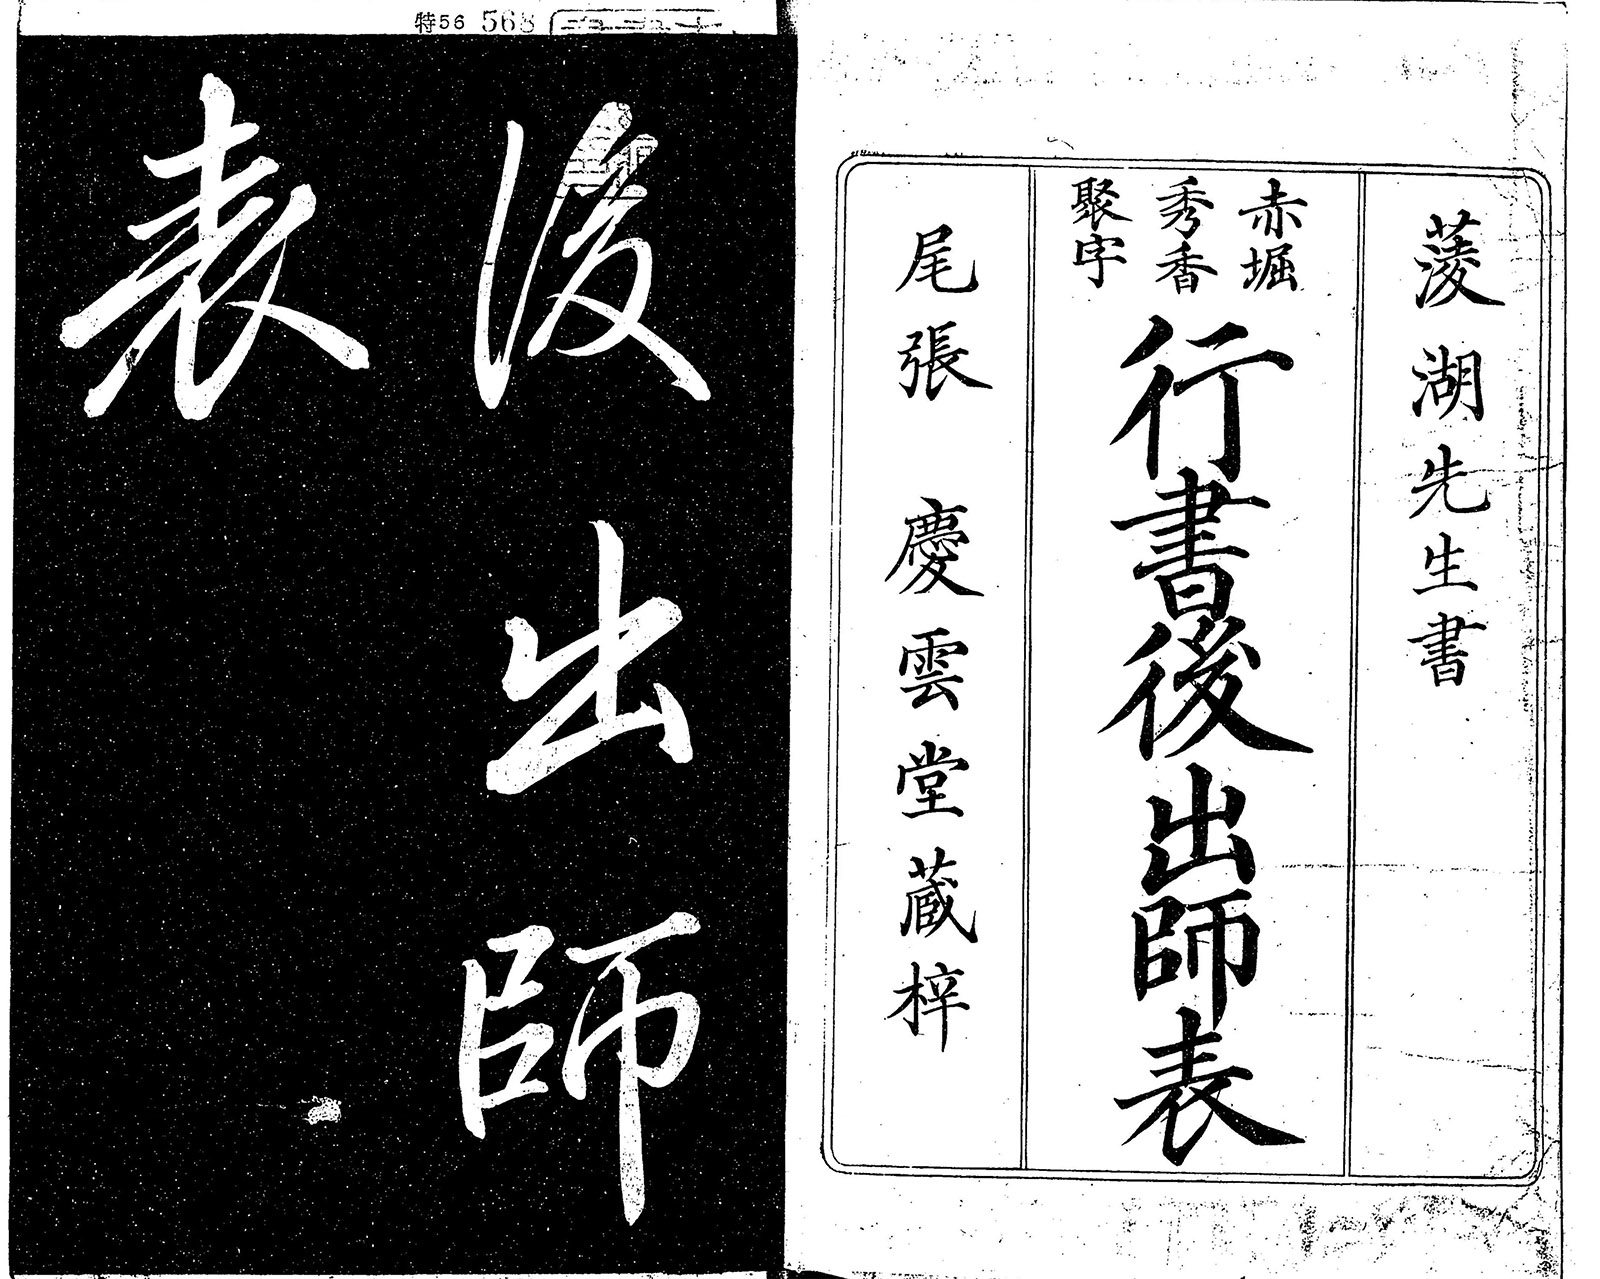 蓤湖先生書
赤堀
秀香
聚字
行書後出師表
尾張 慶雲堂蔵梓
特56 568
後出師
表